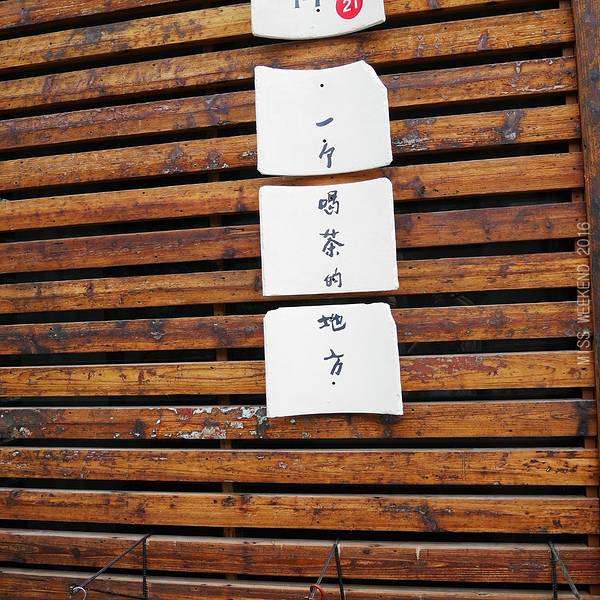 21
一个
喝茶的
地方
MISS WEEKEND 2016